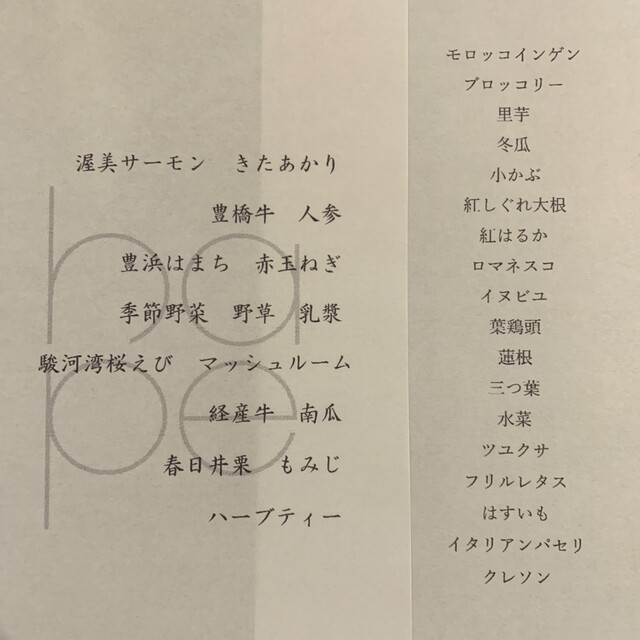 hape
渥美サーモン　きたあかり
豊橋牛　人参
豊浜はまち　赤玉ねぎ
季節野菜　野草　乳漿
駿河湾桜えび　マッシュルーム
経産牛　南瓜
春日井栗　もみじ
ハーブティー
モロッコインゲン
ブロッコリー
里芋
冬瓜
小かぶ
紅しぐれ大根
紅はるか
ロマネスコ
イヌビユ
葉鶏頭
蓮根
三つ葉
水菜
ツユクサ
フリルレタス
はすいも
イタリアンパセリ
クレソン